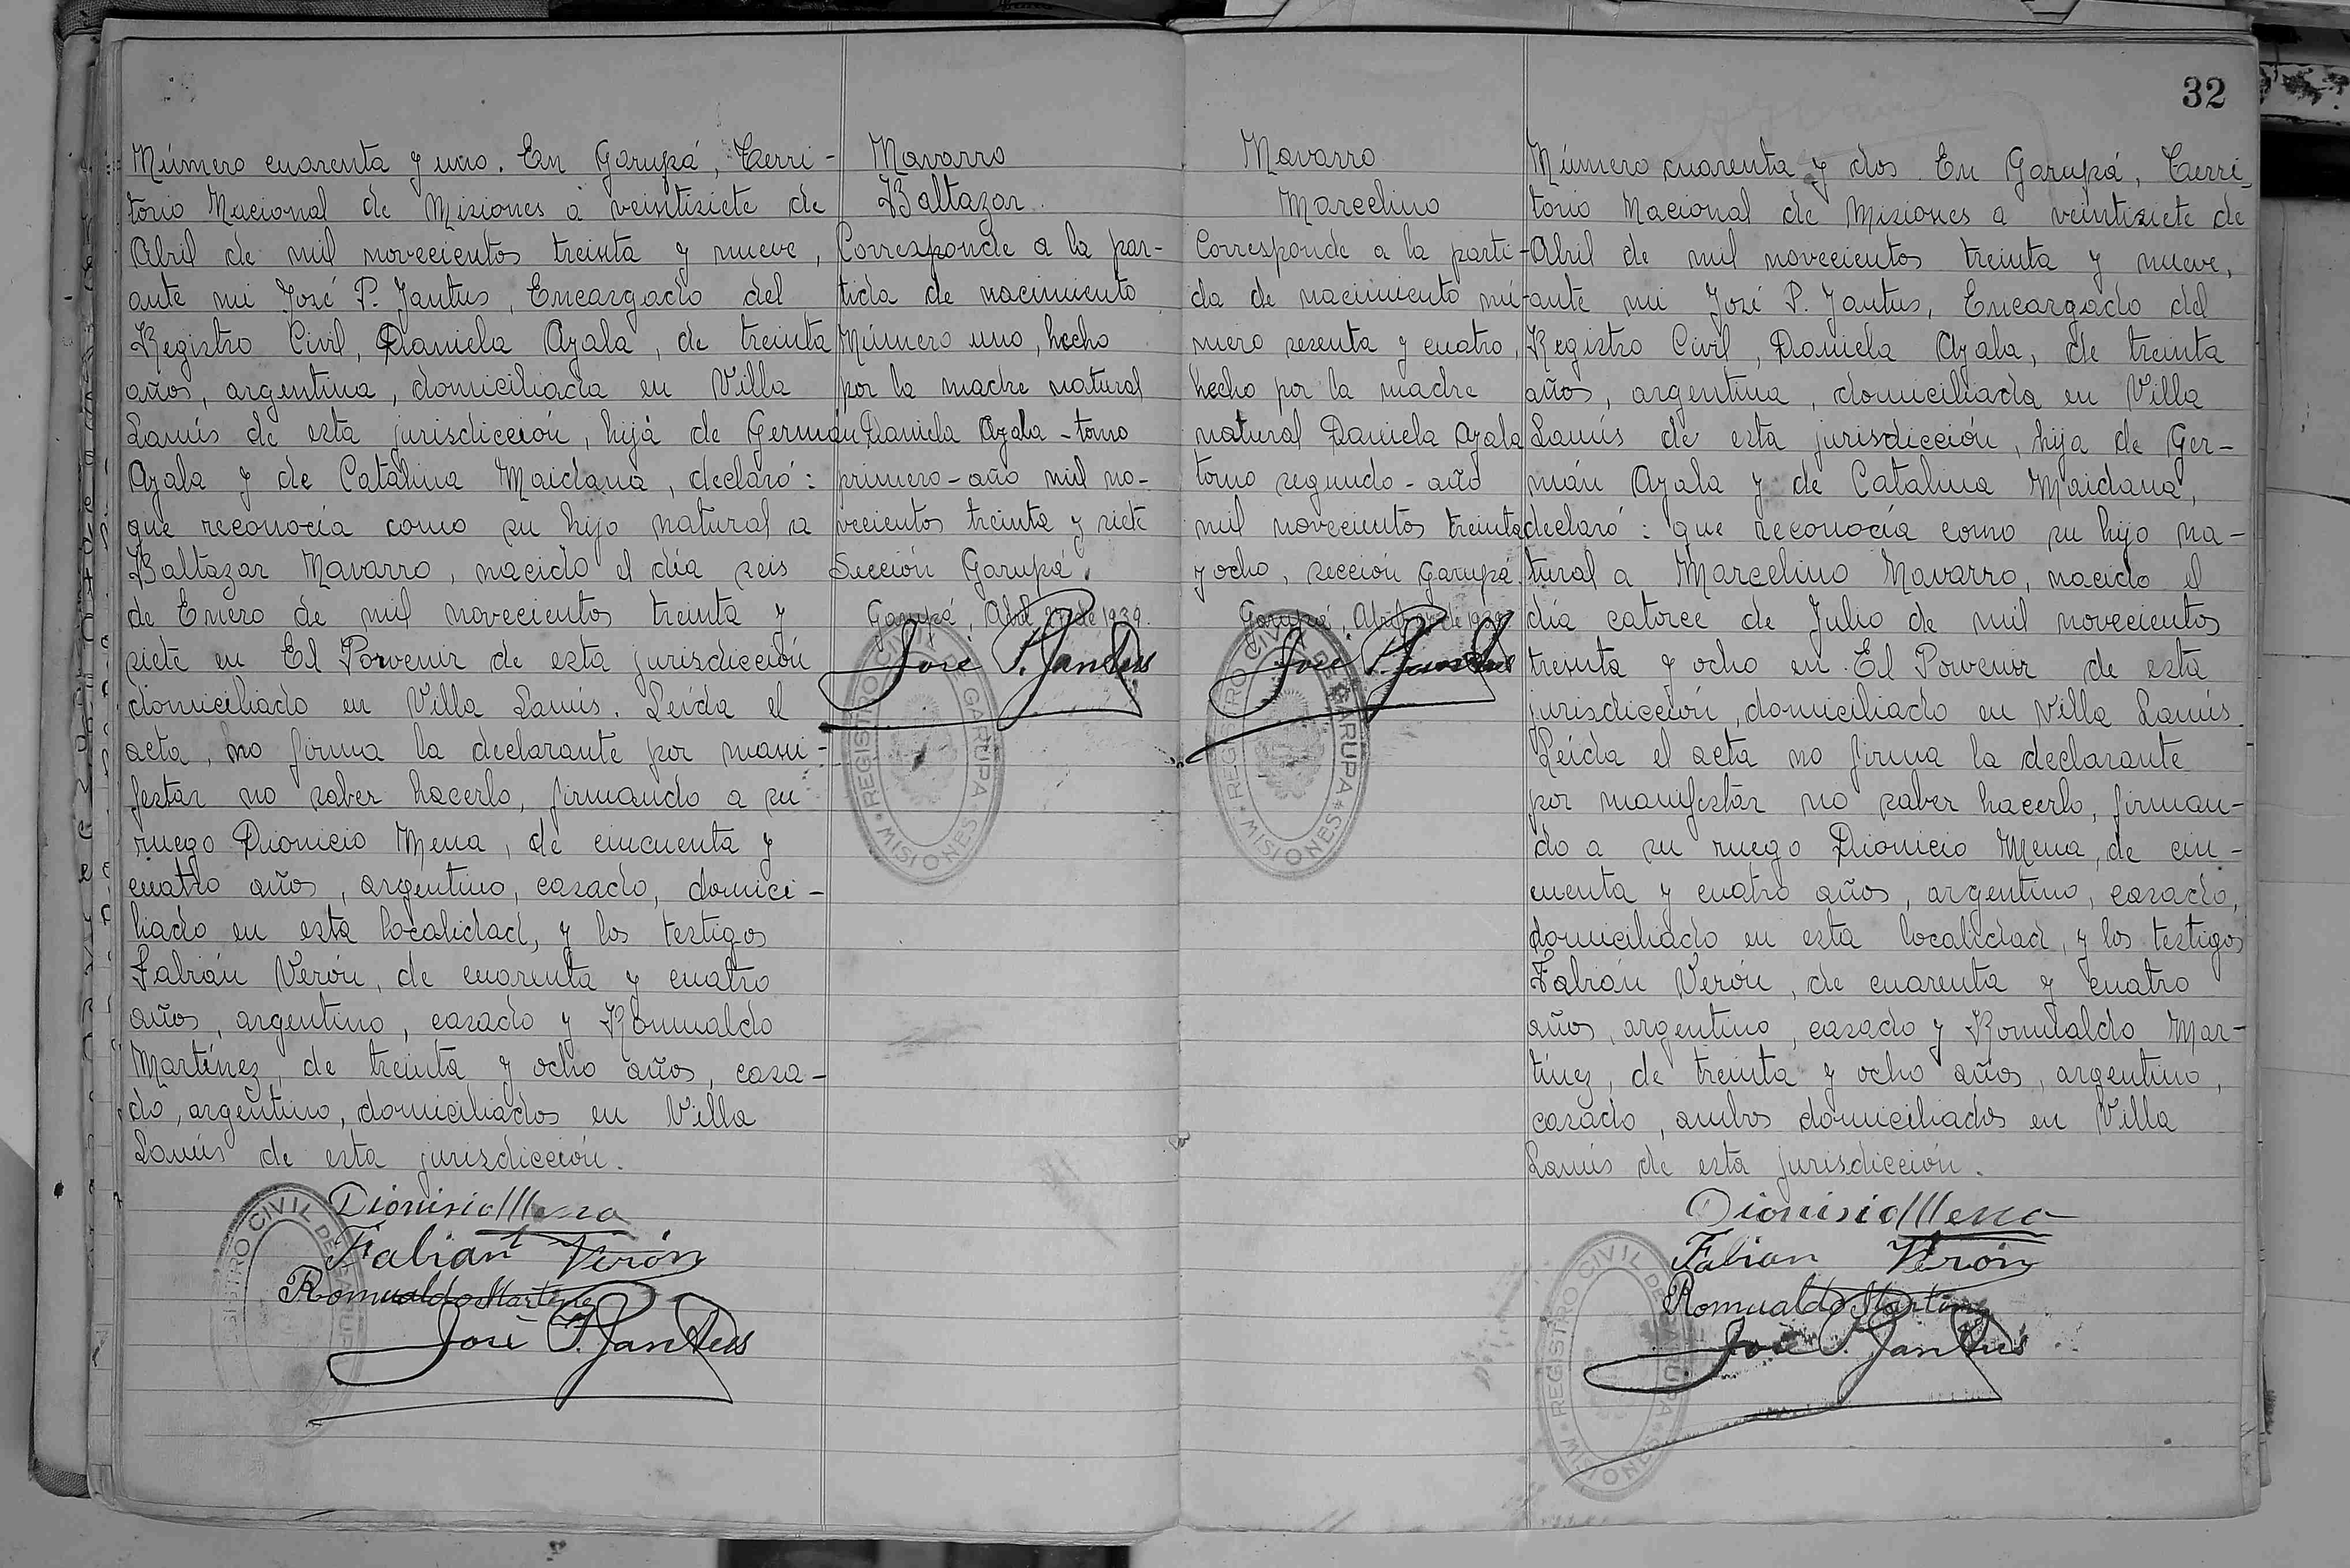 Número cuarenta y uno. En Garupá, Terri-
torio Nacional de Misiones a veintisiete de
Abril de mil novecientos treinta y nueve,
ante mi José P. Jantus, Encargado del
Registro Civil, Daniela Ayala, de treinta
años, argentina, domiciliada en Villa
Lanús de esta jurisdicción, hija de Germán
Ayala y de Catalina Maidana, declaró:
que reconocía como su hijo natural a
Baltazar Navarro, nacido el día seis
de Enero de mil novecientos treinta y
siete en El Porvenir de esta jurisdicción
domiciliado en Villa Lanús. Leída el
acta, no firma la declarante por mani-
festar no saber hacerlo, firmando a su
ruego Dionicio Mena, de cincuenta y
cuatro años, argentino, casado, domici-
liado en esta localidad, y los testigos
Fabián Verón, de cuarenta y cuatro
años, argentino, casado y Romualdo
Martínez, de treinta y ocho años, casa-
do, argentino, domiciliados en Villa
Lanús de esta jurisdicción.
Dionisio Mena
Fabian Verón
Romualdo Martine
José P. Jantus
REGISTRO CIVIL DE GARUPA
Navarro
Baltazar.
Corresponde a la par-
tida de nacimiento
Número uno, hecho
por la madre natural
Daniela Ayala - tomo
primero - año mil no-
vecientos treinta y siete
Sección Garupá.
Garupá, Abril 27 de 1939.
José P. Jantus
REGISTRO CIVIL DE GARUPA * MISIONES *
Navarro
Marcelino
Corresponde a la parti-
da de nacimiento nú-
mero sesenta y cuatro,
hecho por la madre
natural Daniela Ayala
tomo segundo - año
mil novecientos treinta
y ocho, sección Garupá.
Garupá, Abril 27 de 1939
José P. Jantus
REGISTRO CIVIL DE GARUPA * MISIONES *
32
Número cuarenta y dos. En Garupá, Terri-
torio Nacional de Misiones a veintisiete de
Abril de mil novecientos treinta y nueve,
ante mi José P. Jantus, Encargado del
Registro Civil, Daniela Ayala, de treinta
años, argentina, domiciliada en Villa
Lanús de esta jurisdicción, hija de Ger-
mán Ayala y de Catalina Maidana,
declaró: que reconocía como su hijo na-
tural a Marcelino Navarro, nacido el
día catorce de Julio de mil novecientos
treinta y ocho en El Porvenir de esta
jurisdicción, domiciliado en Villa Lanús.
Leída el acta no firma la declarante
por manifestar no saber hacerlo, firman-
do a su ruego Dionicio Mena, de cin-
cuenta y cuatro años, argentino, casado,
domiciliado en esta localidad, y los testigos
Fabián Verón, de cuarenta y cuatro
años, argentino, casado y Romualdo Mar-
tínez, de treinta y ocho años, argentino,
casado, ambos domiciliados en Villa
Lanús de esta jurisdicción.
Dionisio Mena
Fabian Verón
Romualdo Martinez
José P. Jantus
REGISTRO CIVIL DE GARUPA * MISIONES